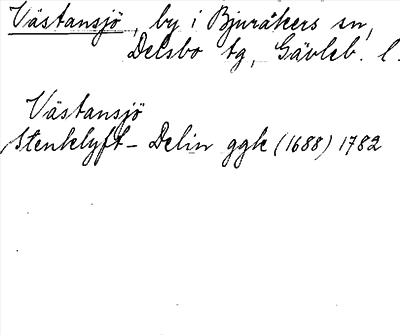 Västansjö, by i Bjuråkers sn,
Delsbo tg, Gävleb. l.
Västansjö
Stenklyft- Delin ggk (1688) 1782